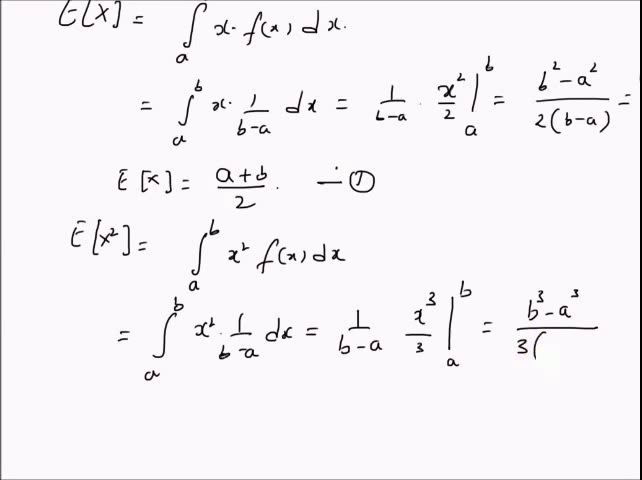 E[X] = ∫ₐ x· f(x) dx.
= ∫ₐᵇ x· 1/(b-a) dx = 1/(b-a) · x²/2 |ₐᵇ = (b²-a²)/(2(b-a)) =
E[x] = (a+b)/2. — ①
E[x²] = ∫ₐᵇ x² f(x) dx
= ∫ₐᵇ x² · 1/(b-a) dx = 1/(b-a) x³/3 |ₐᵇ = (b³-a³)/(3(